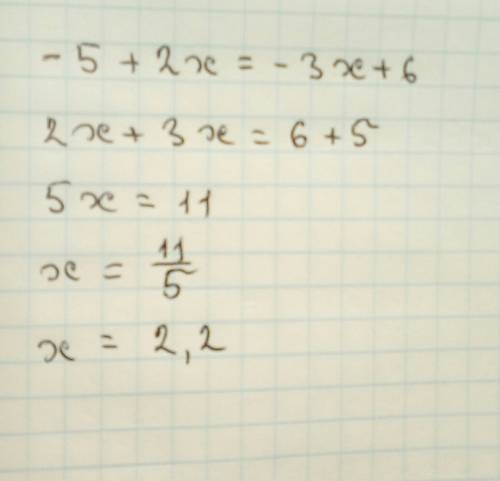 - 5 + 2x = - 3x + 6
2x + 3x = 6 + 5
5x = 11
x = 11/5
x = 2,2